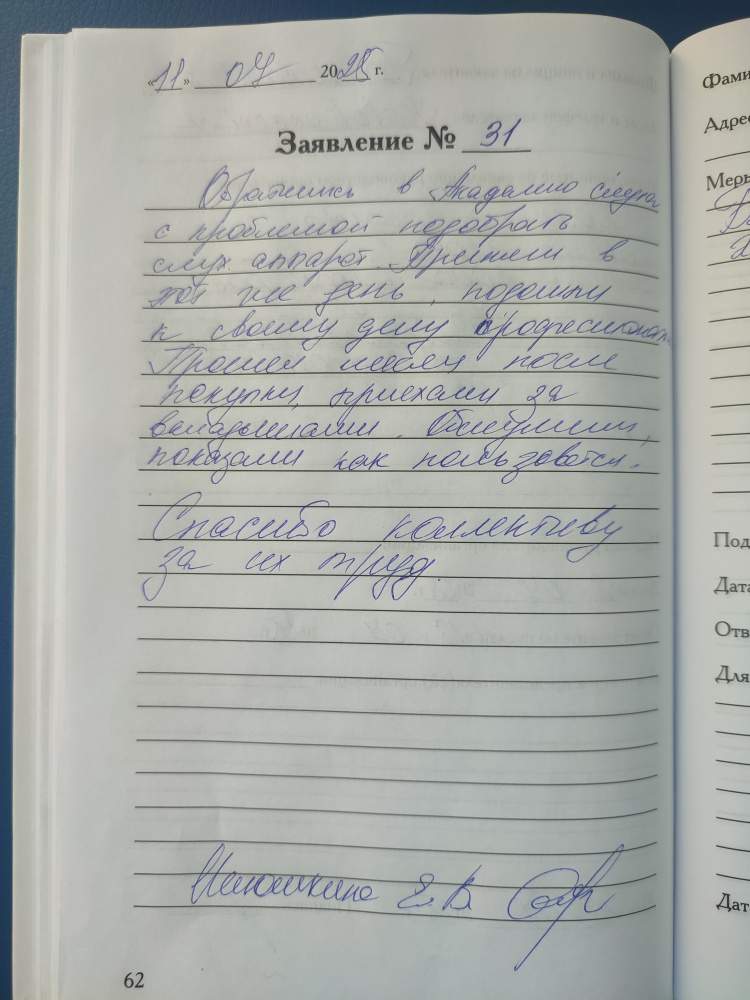 «11» 07 2025 г.
Заявление № 31
Обратились в Академию слуха
с проблемой подобрать
слух. аппарат. Приняли в
тот же день, подошли
к своему делу професионал.
Прошел месяц после
покупки, приехали за
вкладышами. Обслужили,
показали как пользоватся.
Спасибо коллективу
за их труд.
Е.В.
62
Фами
Адрес
Меры
Под
Дата
Отв
Для
Дат